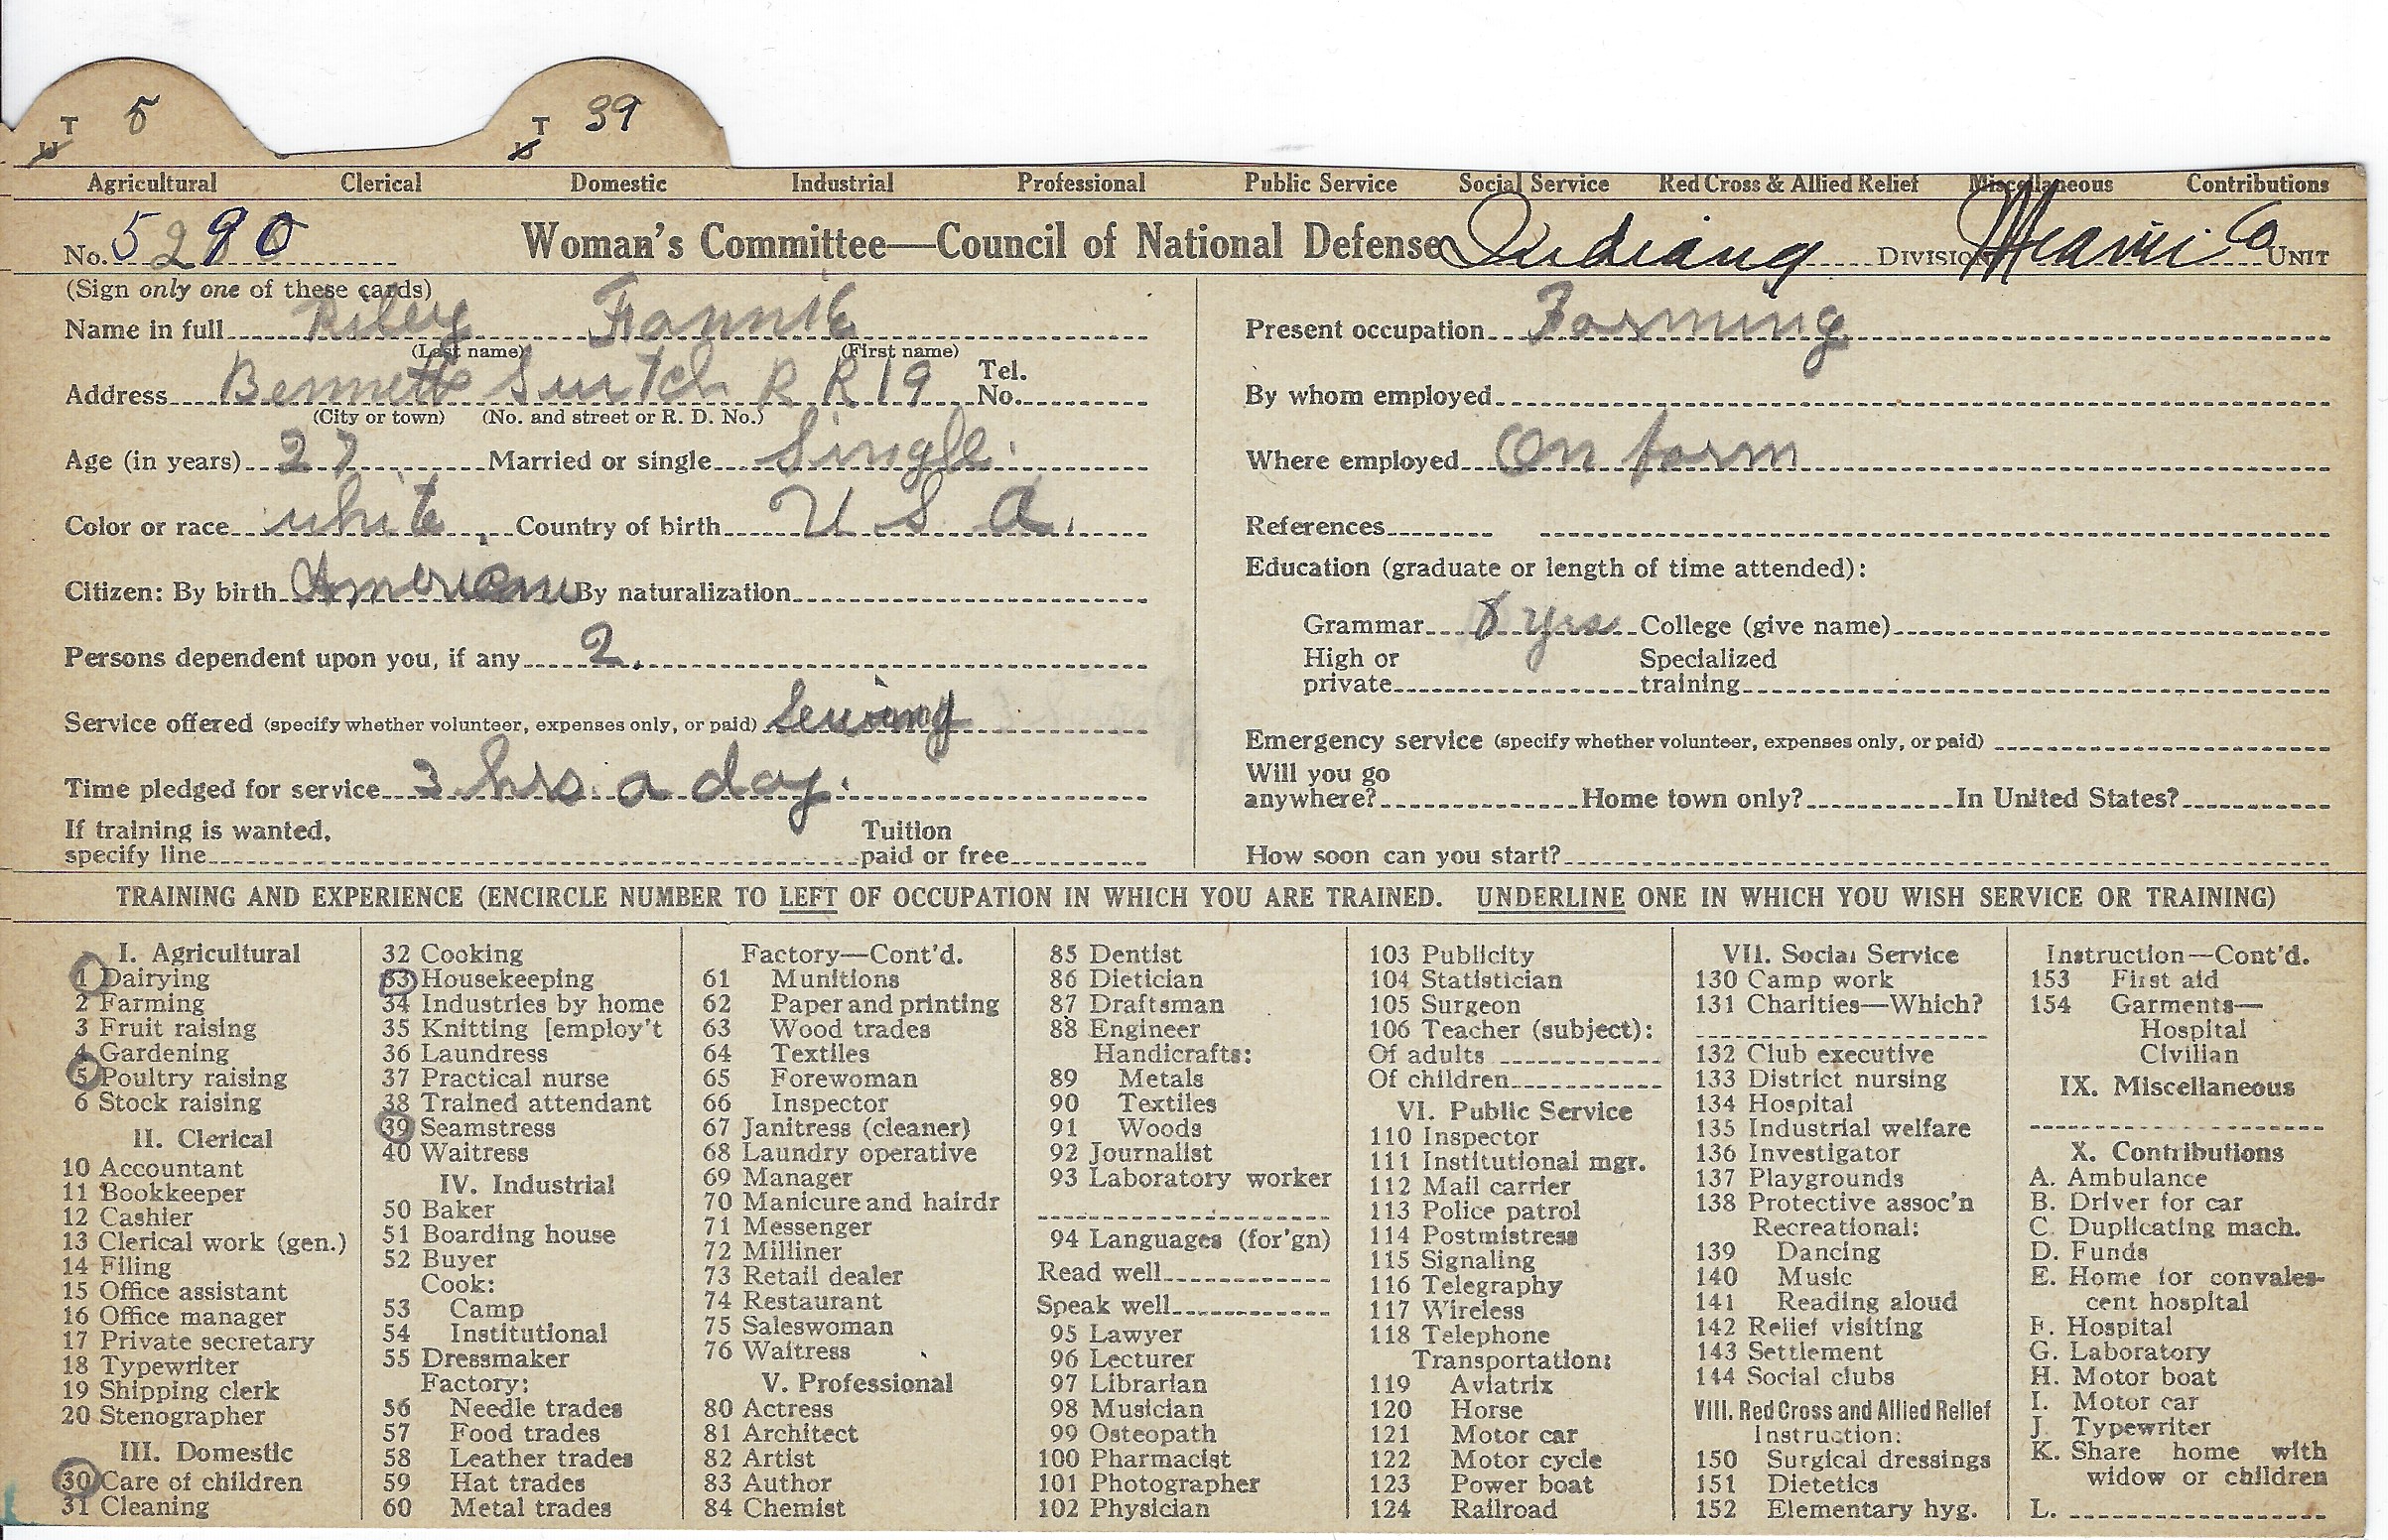 T 5 T 39
W W
Agricultural Clerical Domestic Industrial Professional Public Service Social Service Red Cross & Allied Relief Miscellaneous Contributions
No. 5290 Woman's Committee—Council of National Defense Indiana Division Miami Co Unit
(Sign only one of these cards)
Name in full Riley Fannie
(Last name) (First name)
Address Bennetts Switch R R 19 Tel. No.
(City or town) (No. and street or R. D. No.)
Age (in years) 27 Married or single Single.
Color or race white Country of birth U S A.
Citizen: By birth American By naturalization
Persons dependent upon you, if any 2.
Service offered (specify whether volunteer, expenses only, or paid) Sewing
Time pledged for service 3 hrs. a day.
If training is wanted, specify line Tuition paid or free
Present occupation Farming
By whom employed
Where employed On farm
References
Education (graduate or length of time attended):
Grammar 8 yrs College (give name)
High or private Specialized training
Emergency service (specify whether volunteer, expenses only, or paid)
Will you go anywhere? Home town only? In United States?
How soon can you start?
TRAINING AND EXPERIENCE (ENCIRCLE NUMBER TO LEFT OF OCCUPATION IN WHICH YOU ARE TRAINED. UNDERLINE ONE IN WHICH YOU WISH SERVICE OR TRAINING)
I. Agricultural
1 Dairying
2 Farming
3 Fruit raising
4 Gardening
5 Poultry raising
6 Stock raising
II. Clerical
10 Accountant
11 Bookkeeper
12 Cashier
13 Clerical work (gen.)
14 Filing
15 Office assistant
16 Office manager
17 Private secretary
18 Typewriter
19 Shipping clerk
20 Stenographer
III. Domestic
30 Care of children
31 Cleaning
32 Cooking
33 Housekeeping
34 Industries by home
35 Knitting [employ't
36 Laundress
37 Practical nurse
38 Trained attendant
39 Seamstress
40 Waitress
IV. Industrial
50 Baker
51 Boarding house
52 Buyer
Cook:
53 Camp
54 Institutional
55 Dressmaker
Factory:
56 Needle trades
57 Food trades
58 Leather trades
59 Hat trades
60 Metal trades
Factory—Cont'd.
61 Munitions
62 Paper and printing
63 Wood trades
64 Textiles
65 Forewoman
66 Inspector
67 Janitress (cleaner)
68 Laundry operative
69 Manager
70 Manicure and hairdr
71 Messenger
72 Milliner
73 Retail dealer
74 Restaurant
75 Saleswoman
76 Waitress
V. Professional
80 Actress
81 Architect
82 Artist
83 Author
84 Chemist
85 Dentist
86 Dietician
87 Draftsman
88 Engineer
Handicrafts:
89 Metals
90 Textiles
91 Woods
92 Journalist
93 Laboratory worker
94 Languages (for'gn)
Read well
Speak well
95 Lawyer
96 Lecturer
97 Librarian
98 Musician
99 Osteopath
100 Pharmacist
101 Photographer
102 Physician
103 Publicity
104 Statistician
105 Surgeon
106 Teacher (subject):
Of adults
Of children
VI. Public Service
110 Inspector
111 Institutional mgr.
112 Mail carrier
113 Police patrol
114 Postmistress
115 Signaling
116 Telegraphy
117 Wireless
118 Telephone
Transportation:
119 Aviatrix
120 Horse
121 Motor car
122 Motor cycle
123 Power boat
124 Railroad
VII. Social Service
130 Camp work
131 Charities—Which?
132 Club executive
133 District nursing
134 Hospital
135 Industrial welfare
136 Investigator
137 Playgrounds
138 Protective assoc'n
Recreational:
139 Dancing
140 Music
141 Reading aloud
142 Relief visiting
143 Settlement
144 Social clubs
VIII. Red Cross and Allied Relief
Instruction:
150 Surgical dressings
151 Dietetics
152 Elementary hyg.
Instruction—Cont'd.
153 First aid
154 Garments—
Hospital
Civilian
IX. Miscellaneous
X. Contributions
A. Ambulance
B. Driver for car
C. Duplicating mach.
D. Funds
E. Home for convales-
cent hospital
F. Hospital
G. Laboratory
H. Motor boat
I. Motor car
J. Typewriter
K. Share home with
widow or children
L.